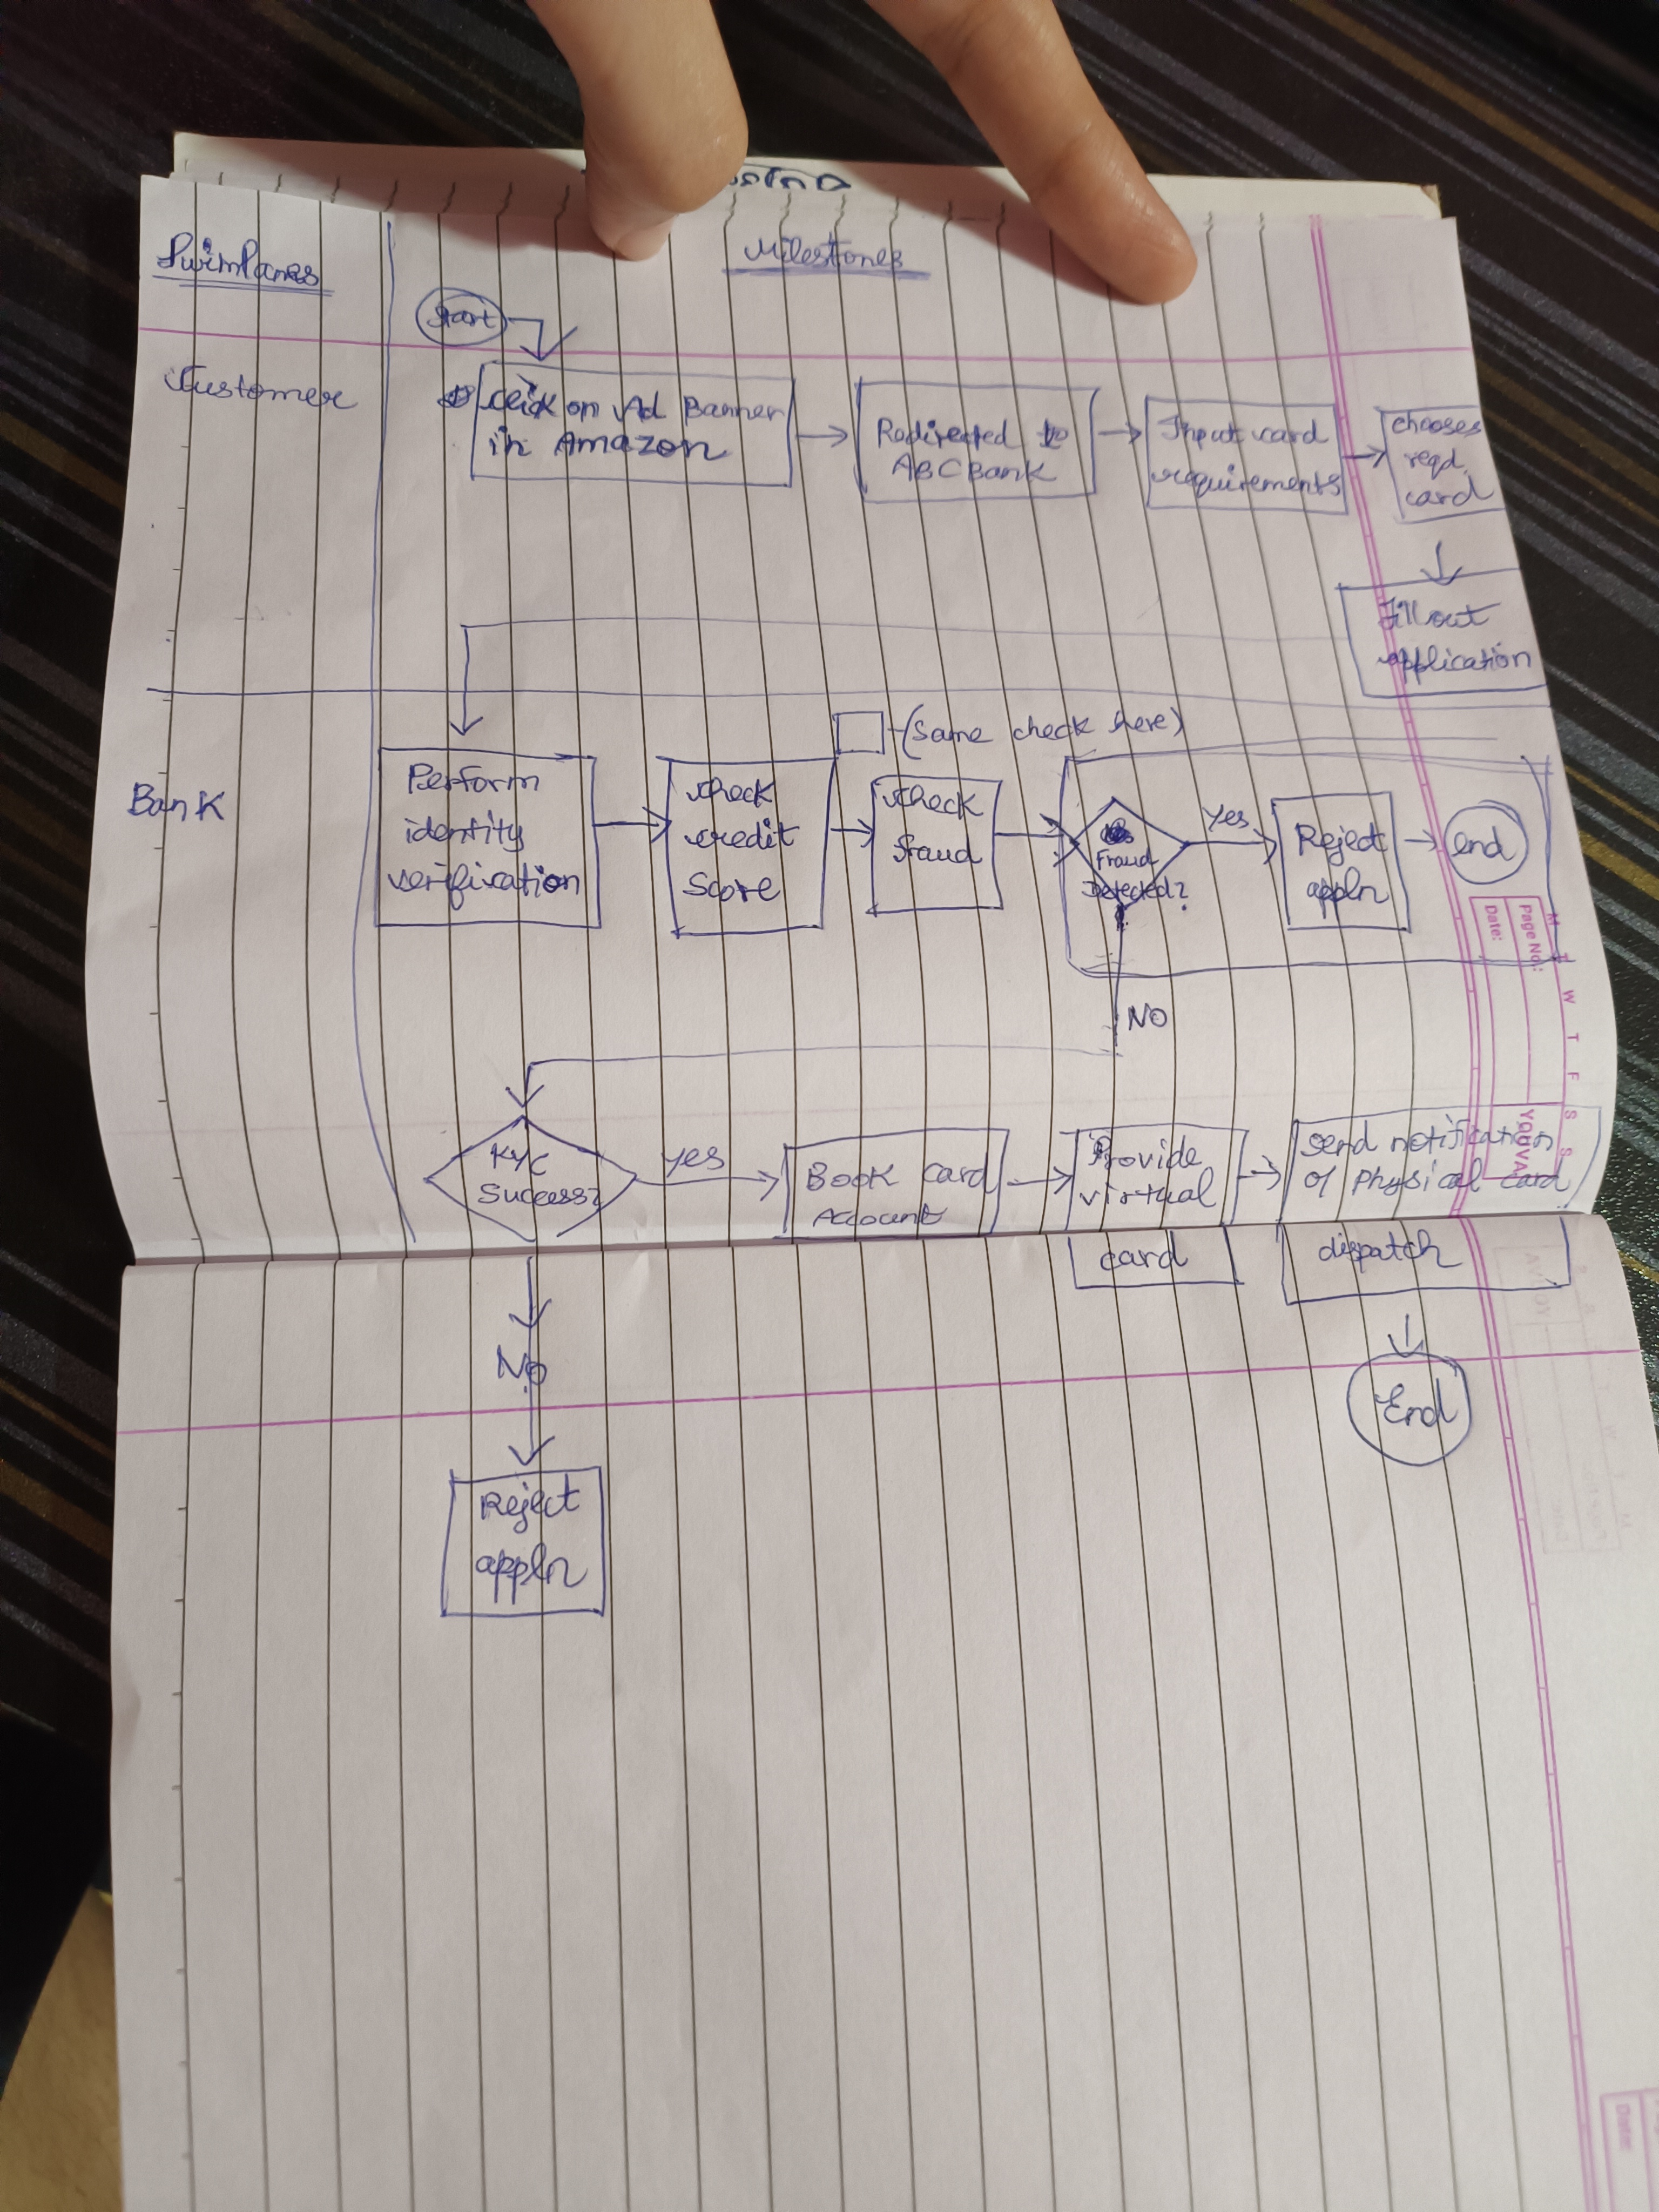 Swimlanes
Milestones
Start
Customer
Click on Ad Banner
in Amazon
Redirected to
ABC Bank
Input card
requirements
chooses
reqd.
card
Fill out
application
(Same check here)
Bank
Perform
identity
verification
Check
credit
Score
Check
fraud
Fraud
Detected?
Yes
Reject
appln
end
Page No.:
Date:
M T W T F S S
YOUVA
NO
KYC
Success?
YES
Book card
Account
Provide
virtual
card
Send notification
of physical card
dispatch
End
No
Reject
appln
Date: